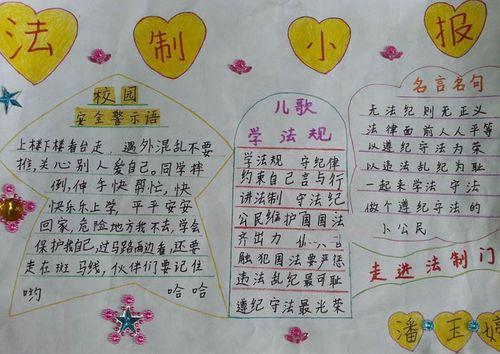 法制小报
校园
安全警示语
上楼下楼看台走，遇外混乱不要
推，关心别人爱自己。同学摔
倒，伸手快帮忙，快
快乐乐上学，平平安安
回家，危险地方我不去，学会
保护我自己，过马路两边看，还要
走在斑马线，伙伴们要记住
哟 哈哈
儿歌
学法规
学法规 守纪律
约束自己言与行
讲法制 守法纪
公民维护国国法
齐出力
触犯国法要严惩
违法乱纪最可耻
遵纪守法最光荣
名言名句
无法纪则无正义
法律面前人人平等
以遵纪守法为荣
以违法乱纪为耻
一起来学法 守法
做个遵纪守法的
小公民
走进法制门
潘玉婷